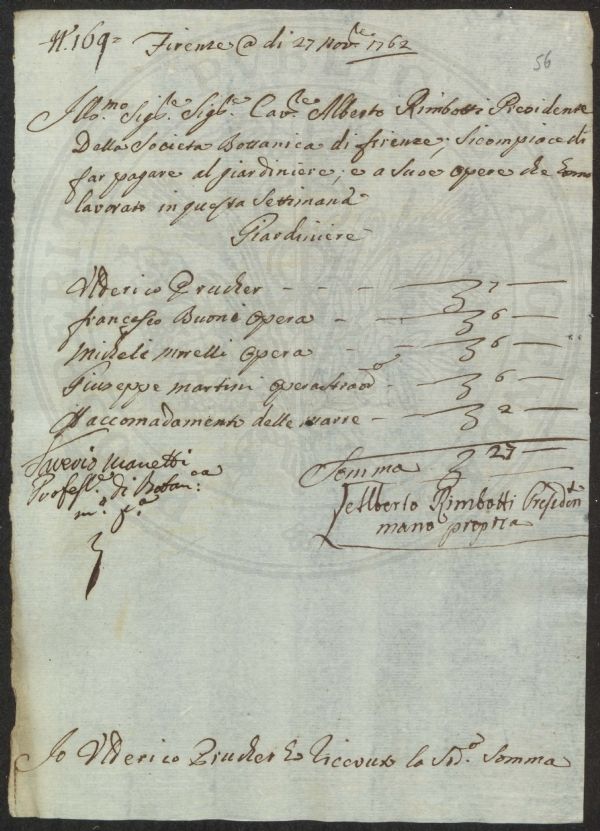 N. 169= Firenze @ di 27 Nov.e 1762
56
Illo.mo Sig.re Sig.re Cav.re Alberto Rimbotti Presidente
Della Societa Bottanica di firenze; Si compiace di
far pagare al giardiniere; e a Sue opere che
lavorato in questa Settimana
Giardiniere
Ulderico Prucher - - - 7 -
francesco Buoni Opera - - 6 -
Michele Morelli Opera - 6 -
Giuseppe Martini Opera straord.o - 6 -
accomodamenti delle marre - 2 -
Somma 27 -
Saverio Manetti
Profess.e di Botan.ca
m.o p.a
Alberto Rimbotti Presidente
mano propria
Io Ulderico Prucher ho Riceuto la Sud.a Somma